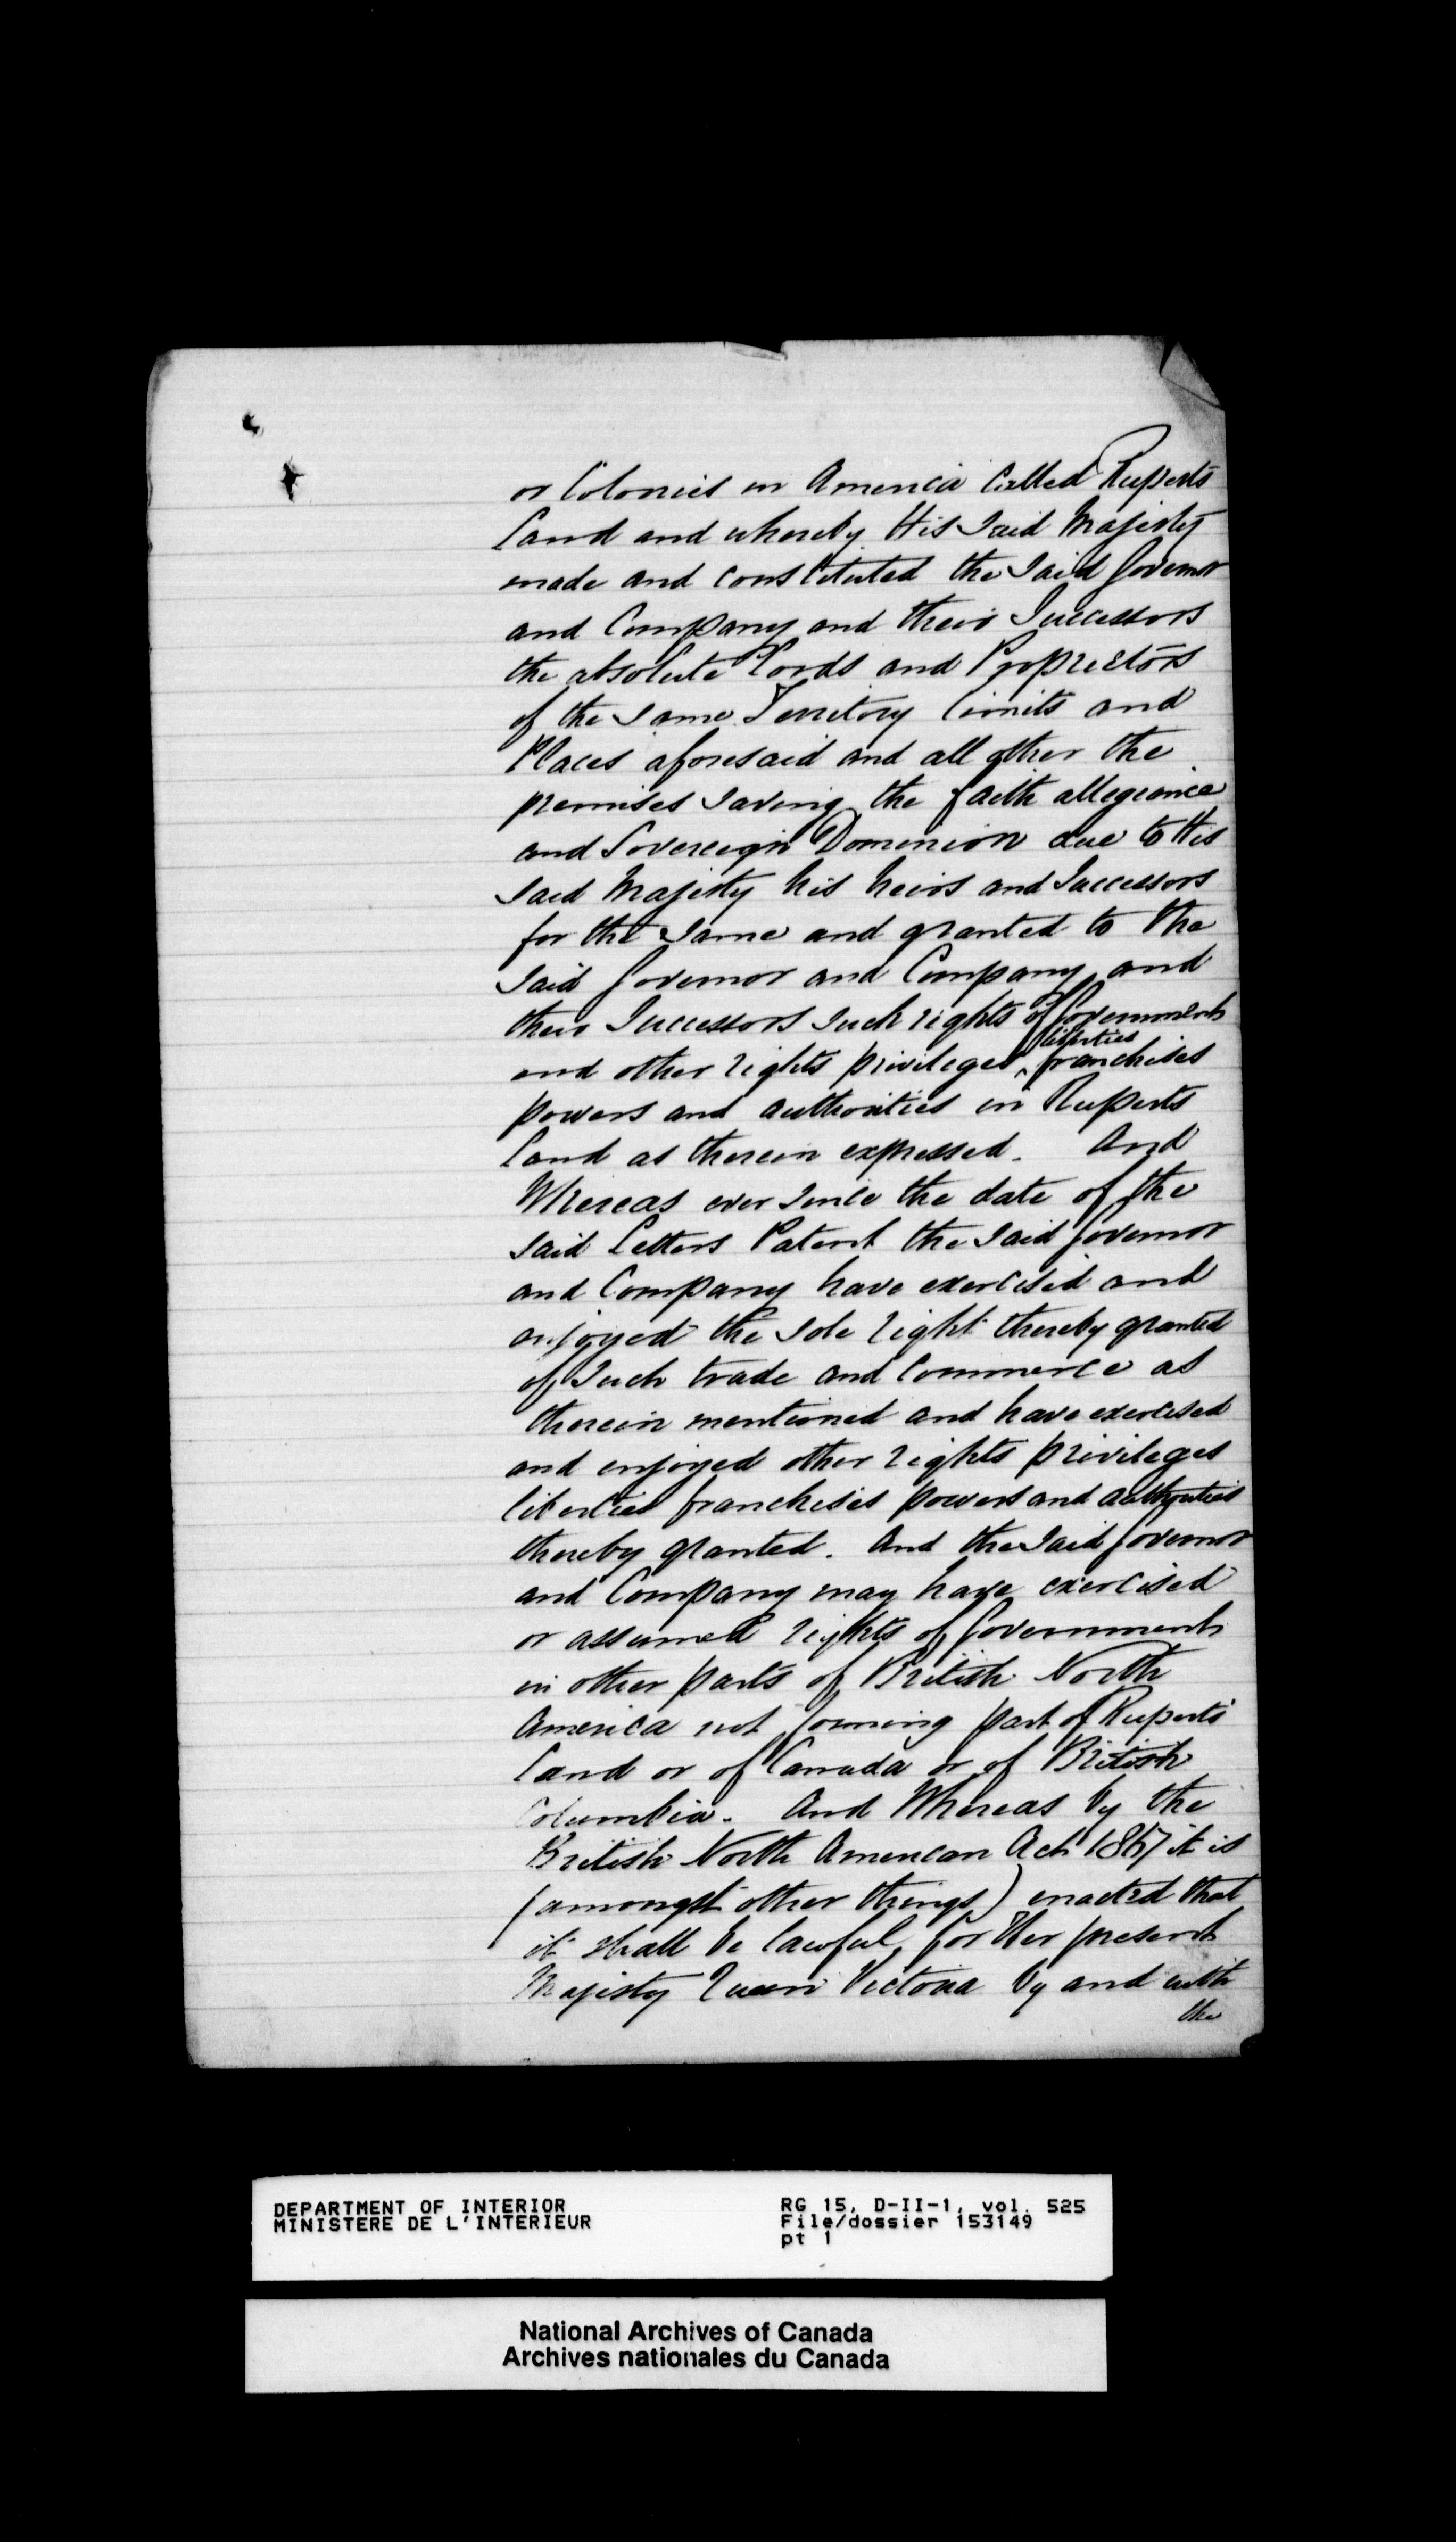 or Colonies in America called Ruperts
Land and whereby His Said Majesty
made and constituted the Said Governor
and Company and their Successors
the absolute Lords and Proprietors
of the Same Territory limits and
Places aforesaid and all other the
premises saving the faith allegiance
and Sovereign Dominion due to His
Said Majesty his heirs and Successors
for the Same and granted to the
Said Governor and Company and
their Successors Such rights of Government
liberties
and other rights privileges ‸ franchises
powers and authorities in Ruperts
Land as therein expressed. And
Whereas ever Since the date of the
Said Letters Patent the Said Governor
and Company have exercised and
enjoyed the Sole right thereby granted
of Such trade and Commerce as
therein mentioned and have exercised
and enjoyed other rights privileges
liberties franchises powers and authorities
thereby granted. And the Said Governor
and Company may have exercised
or assumed rights of Government
in other parts of British North
America not forming part of Ruperts
Land or of Canada or of British
Columbia. And Whereas by the
British North American Act 1867 it is
(amongst other things) enacted that
it shall be lawful for Her present
Majesty Queen Victoria by and with
the
DEPARTMENT OF INTERIOR
MINISTERE DE L'INTERIEUR
RG 15, D-II-1, vol. 525
File/dossier 153149
pt 1
National Archives of Canada
Archives nationales du Canada